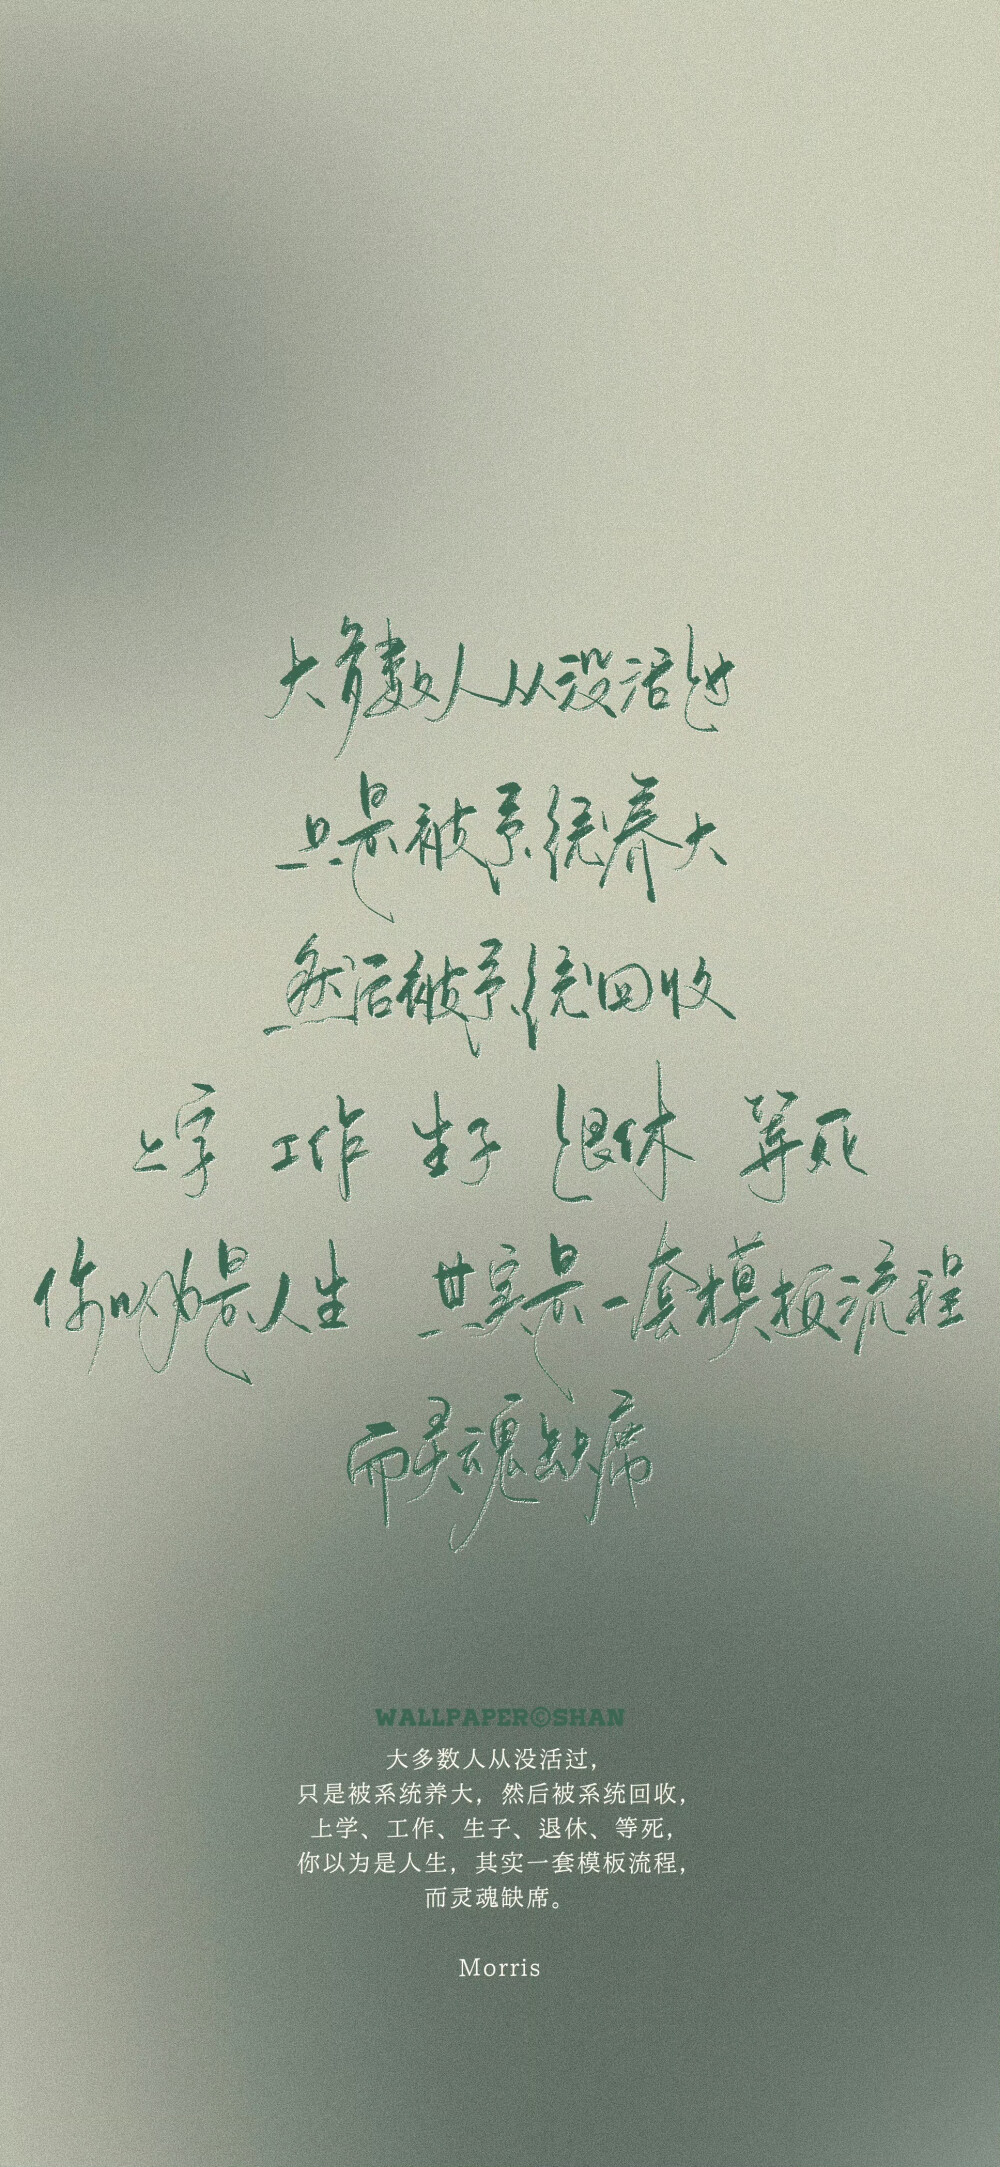 大多数人从没活过
只是被系统养大
然后被系统回收
上学 工作 生子 退休 等死
你以为是人生 其实是一套模板流程
而灵魂缺席
WALLPAPER©SHAN
大多数人从没活过，
只是被系统养大，然后被系统回收，
上学、工作、生子、退休、等死，
你以为是人生，其实一套模板流程，
而灵魂缺席。
Morris